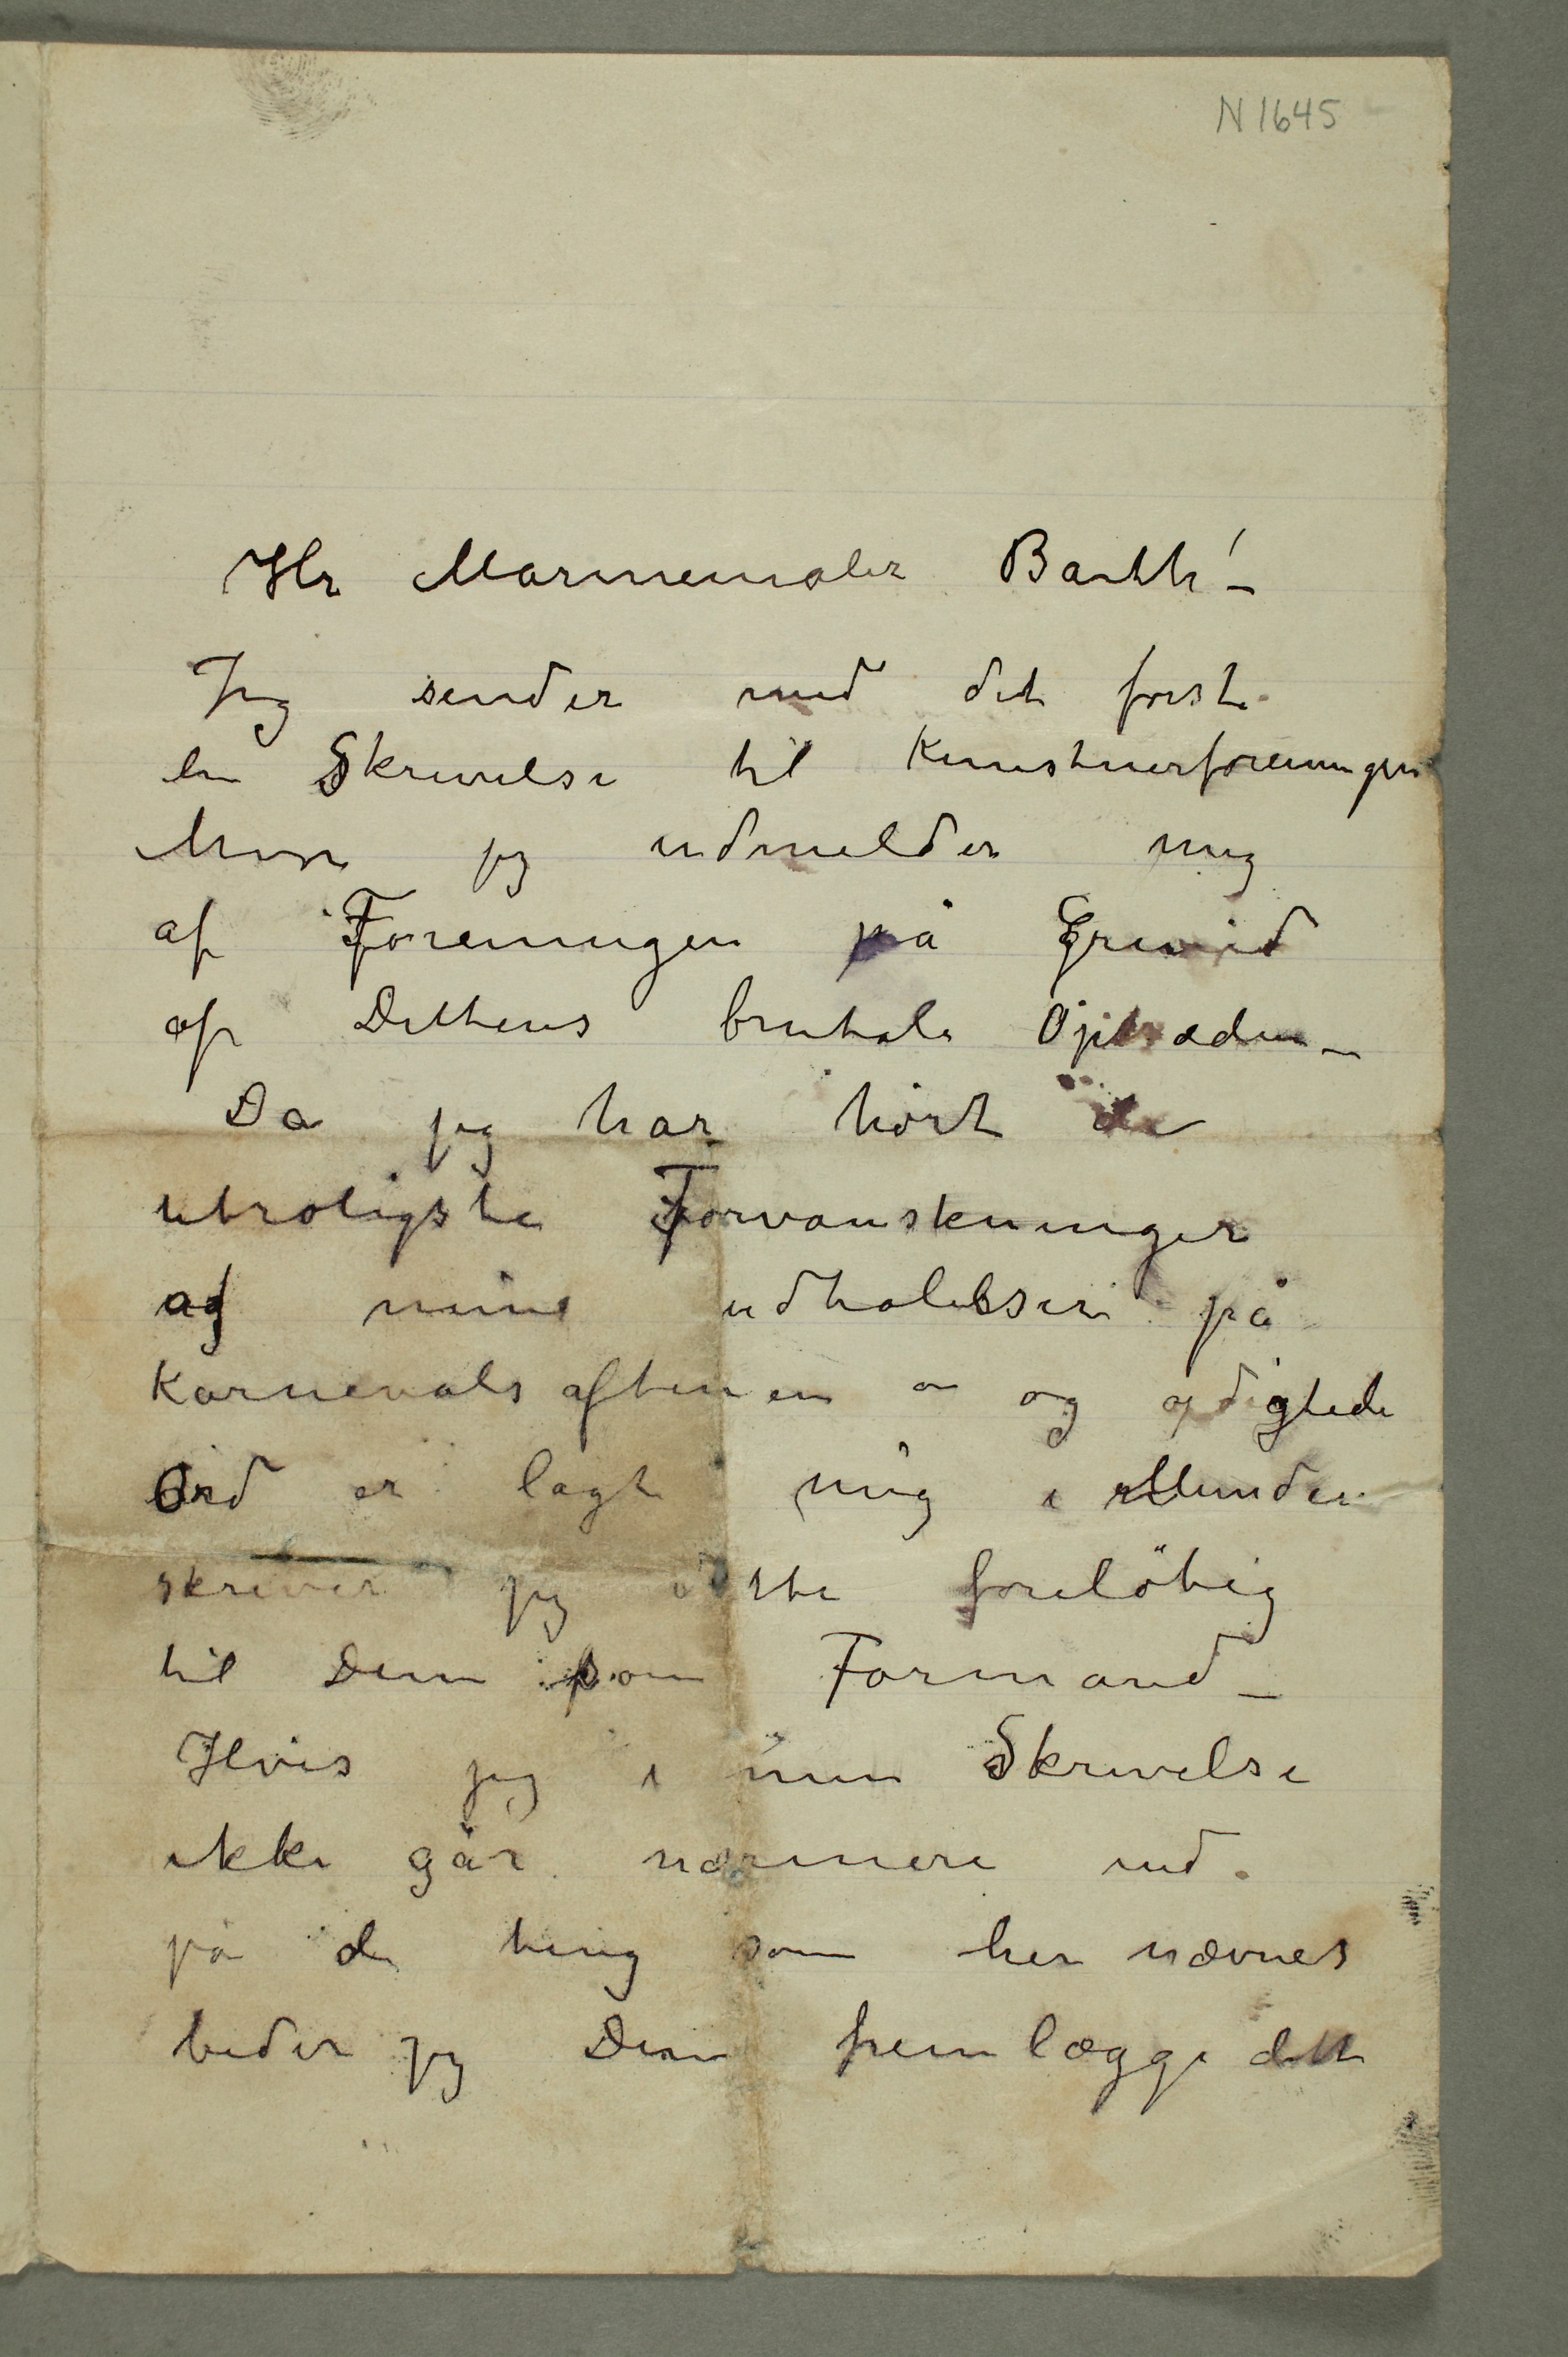 N 1645
Hr Marinemaler Barth! –
Jeg sender med det første
en Skrivelse til Kunstnerforeningen
hvori jeg udmelder mig
af Foreningen på Grund
af Dittens brutale Optræden –
Da jeg har hørt de
utroligste Forvanskninger
af mine udtalelser på
Karnevalsaftenen – og opdigtede
Ord er lagt mig i Munden
skriver jeg dette foreløbig
til Dem som Formand –
Hvis jeg i min Skrivelse
ikke går nærmere ind
på de ting som her nævnes
beder jeg Dem fremlægge dette